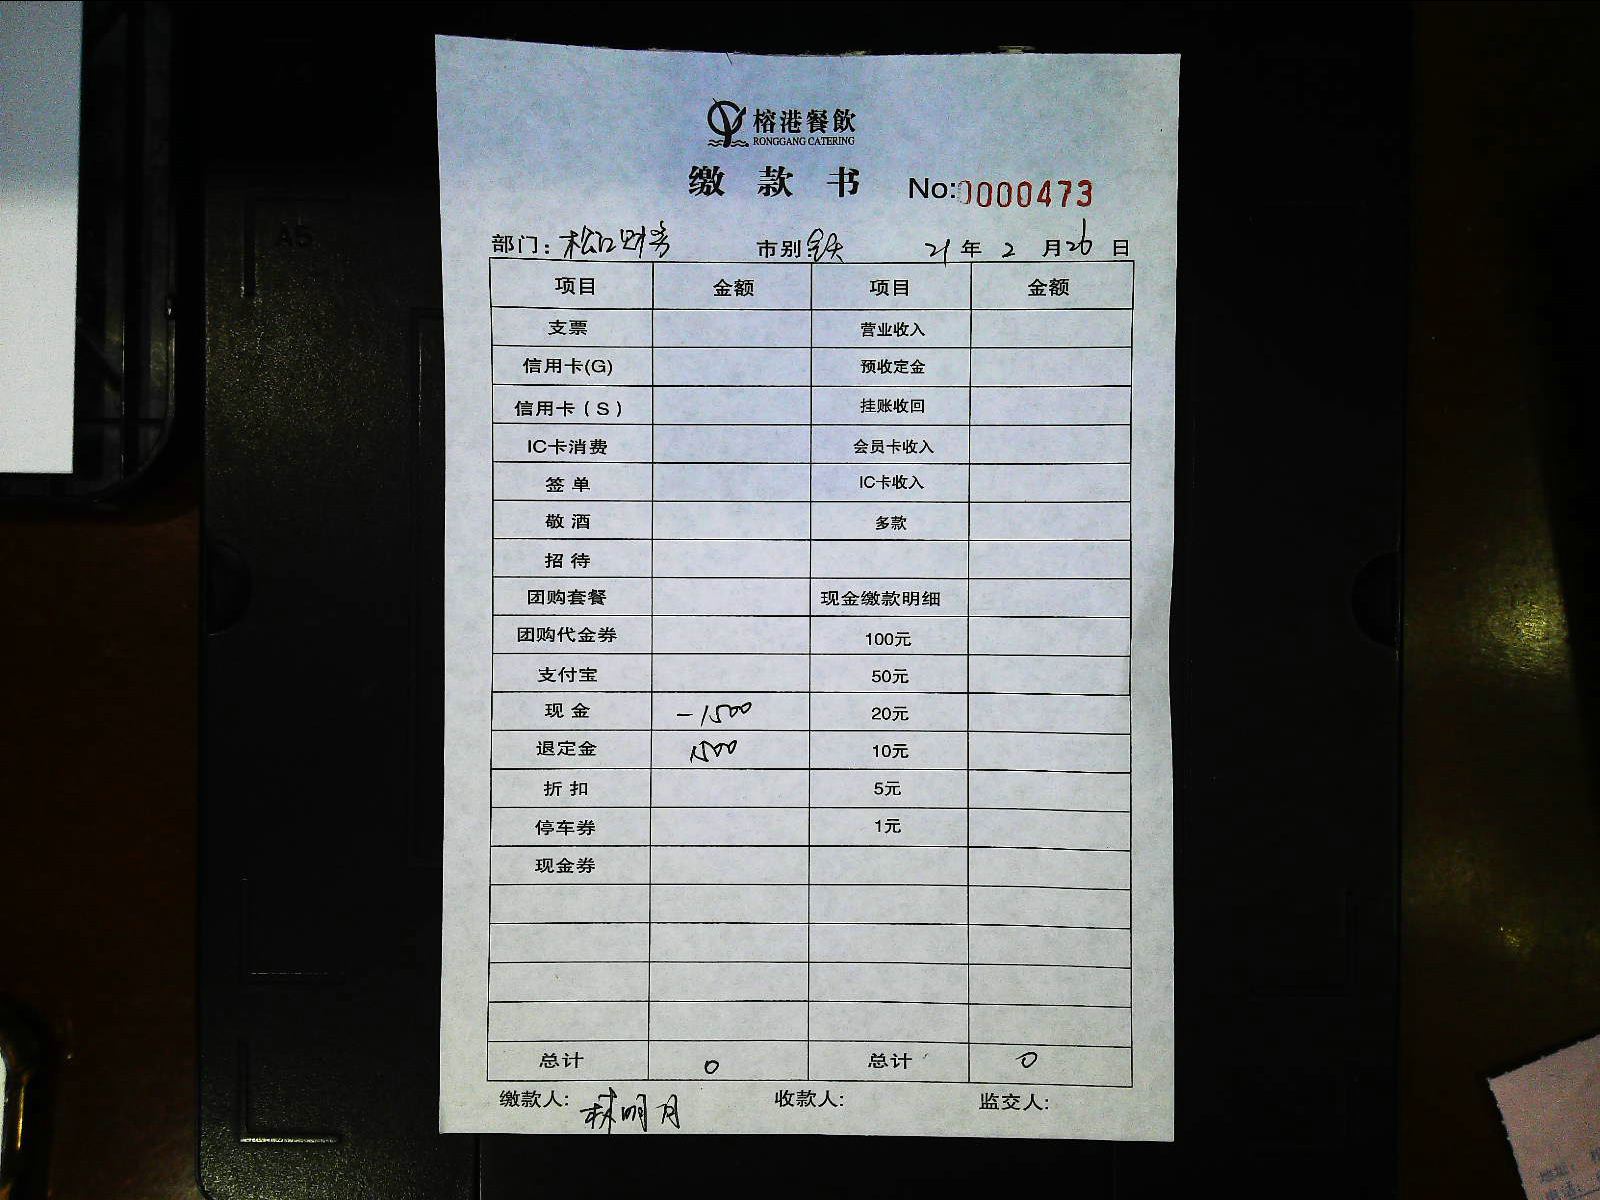 榕港餐飲
RONGGANG CATERING
缴款书 No:0000473
部门:松江财务 市别:全天 21年2月26日
项目 金额 项目 金额
支票 营业收入
信用卡(G) 预收定金
信用卡(S) 挂账收回
IC卡消费 会员卡收入
签单 IC卡收入
敬酒 多款
招待
团购套餐 现金缴款明细
团购代金券 100元
支付宝 50元
现金 -1500 20元
退定金 1500 10元
折扣 5元
停车券 1元
现金券
总计 0 总计 0
缴款人:林明月 收款人: 监交人:
A5